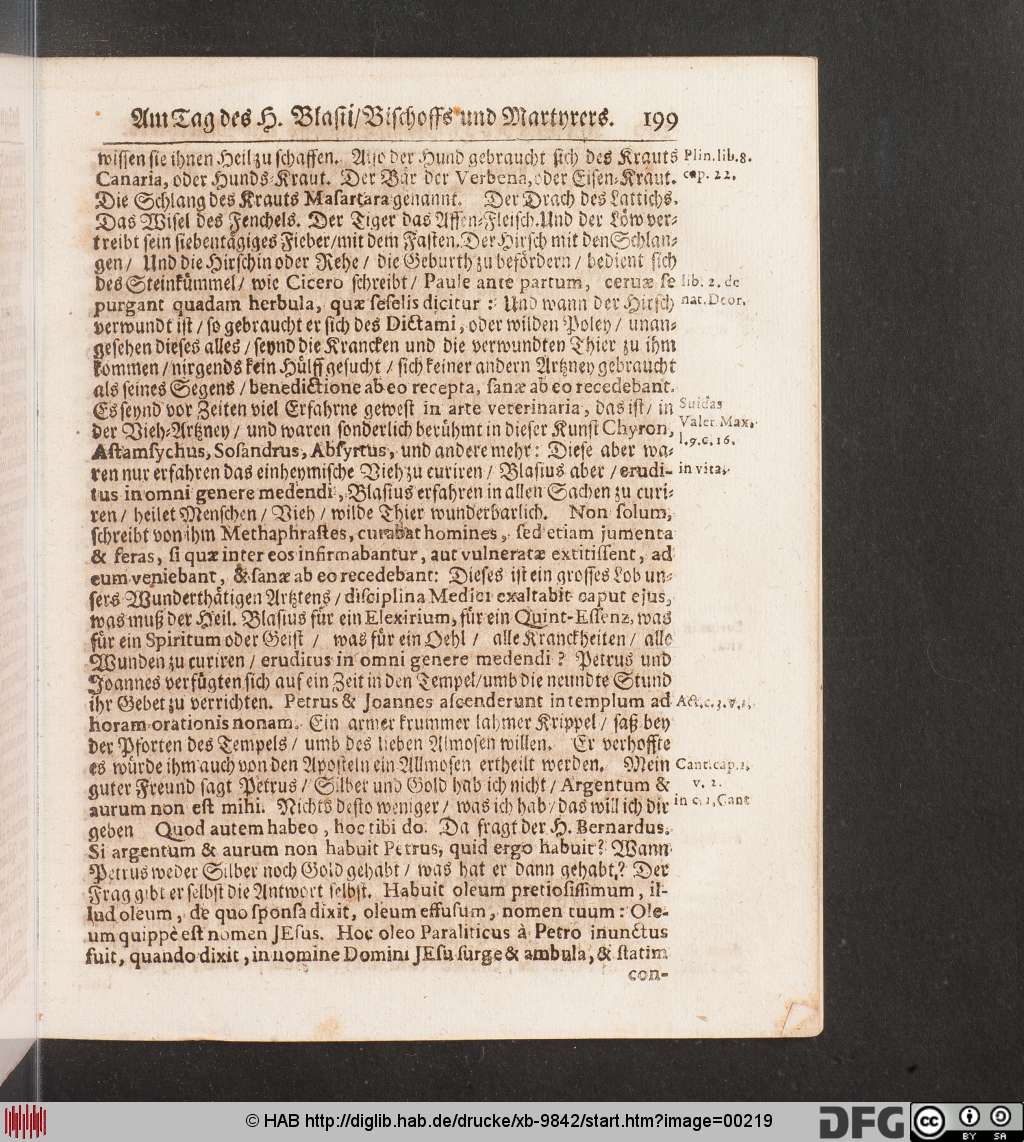 Am Tag des H. Blasii/Bischoffs und Martyrers. 199
wissen sie ihnen Heil zu schaffen. Also der Hund gebraucht sich des Krauts
Canaria, oder Hunds-Kraut. Der Bär der Verbena, oder Eisen-Kraut.
Die Schlang des Krauts Masartara genannt. Der Drach des Lattichs.
Das Wisel des Fenchels. Der Tiger das Affen-Fleisch. Und der Löw ver-
treibt sein siebentägiges Fieber/mit dem Fasten. Der Hirsch mit den Schlan-
gen/ Und die Hirschin oder Rehe/ die Geburth zu befördern/ bedient sich
des Steinkümmel/ wie Cicero schreibt/ Paule ante partum, ceruæ se
purgant quadam herbula, quæ seselis dicitur: Und wann der Hirsch
verwundt ist/ so gebraucht er sich des Dictami, oder wilden Poley/ unan-
gesehen dieses alles/ seynd die Krancken und die verwundten Thier zu ihm
kommen/ nirgends kein Hülff gesucht/ sich keiner andern Artzney gebraucht
als seines Segens/ benedictione ab eo recepta, sanæ ab eo recedebant.
Es seynd vor Zeiten viel Erfahrne gewest in arte veterinaria, das ist/ in
der Vieh-Artzney/ und waren sonderlich berühmt in dieser Kunst Chyron,
Astamsychus, Sosandrus, Absyrtus, und andere mehr: Diese aber wa-
ren nur erfahren das einheymische Vieh zu curiren/ Blasius aber/ erudi-
tus in omni genere medendi, Blasius erfahren in allen Sachen zu curi-
ren/ heilet Menschen/ Vieh/ wilde Thier wunderbarlich. Non solum,
schreibt von ihm Methaphrastes, curabat homines, sed etiam jumenta
& feras, si quæ inter eos infirmabantur, aut vulneratæ extitissent, ad
eum veniebant, & sanæ ab eo recedebant: Dieses ist ein grosses Lob un-
sers Wunderthätigen Artztens/ disciplina Medici exaltabit caput ejus,
was muß der Heil. Blasius für ein Elexirium, für ein Quint-Essenz, was
für ein Spiritum oder Geist/ was für ein Oehl/ alle Kranckheiten/ alle
Wunden zu curiren/ eruditus in omni genere medendi? Petrus und
Joannes verfügten sich auf ein Zeit in den Tempel/ umb die neundte Stund
ihr Gebet zu verrichten. Petrus & Joannes ascenderunt in templum ad
horam orationis nonam. Ein armer krummer lahmer Krippel/ saß bey
der Pforten des Tempels/ umb des lieben Almosen willen. Er verhoffte
es würde ihm auch von den Aposteln ein Allmosen ertheilt werden. Mein
guter Freund sagt Petrus/ Silber und Gold hab ich nicht/ Argentum &
aurum non est mihi. Nichts desto weniger/ was ich hab/ das will ich dir
geben Quod autem habeo, hoc tibi do. Da fragt der H. Bernardus.
Si argentum & aurum non habuit Petrus, quid ergo habuit? Wann
Petrus weder Silber noch Gold gehabt/ was hat er dann gehabt? Der
Frag gibt er selbst die Antwort selbst. Habuit oleum pretiosissimum, il-
lud oleum, de quo sponsa dixit, oleum effusum, nomen tuum: Ole-
um quippè est nomen JEsus. Hoc oleo Paraliticus à Petro inunctus
fuit, quando dixit, in nomine Domini JEsu surge & ambula, & statim
con-
Plin. lib. 8.
cap. 22.
lib. 2. de
nat. Deor.
Suidas
Valer. Max.
l. 9. c. 16.
in vita.
Act. c. 3. v. 1.
Cant. cap. 1.
v. 2.
in c. 1, Cant
© HAB http://diglib.hab.de/drucke/xb-9842/start.htm?image=00219
DFG
cc
BY SA